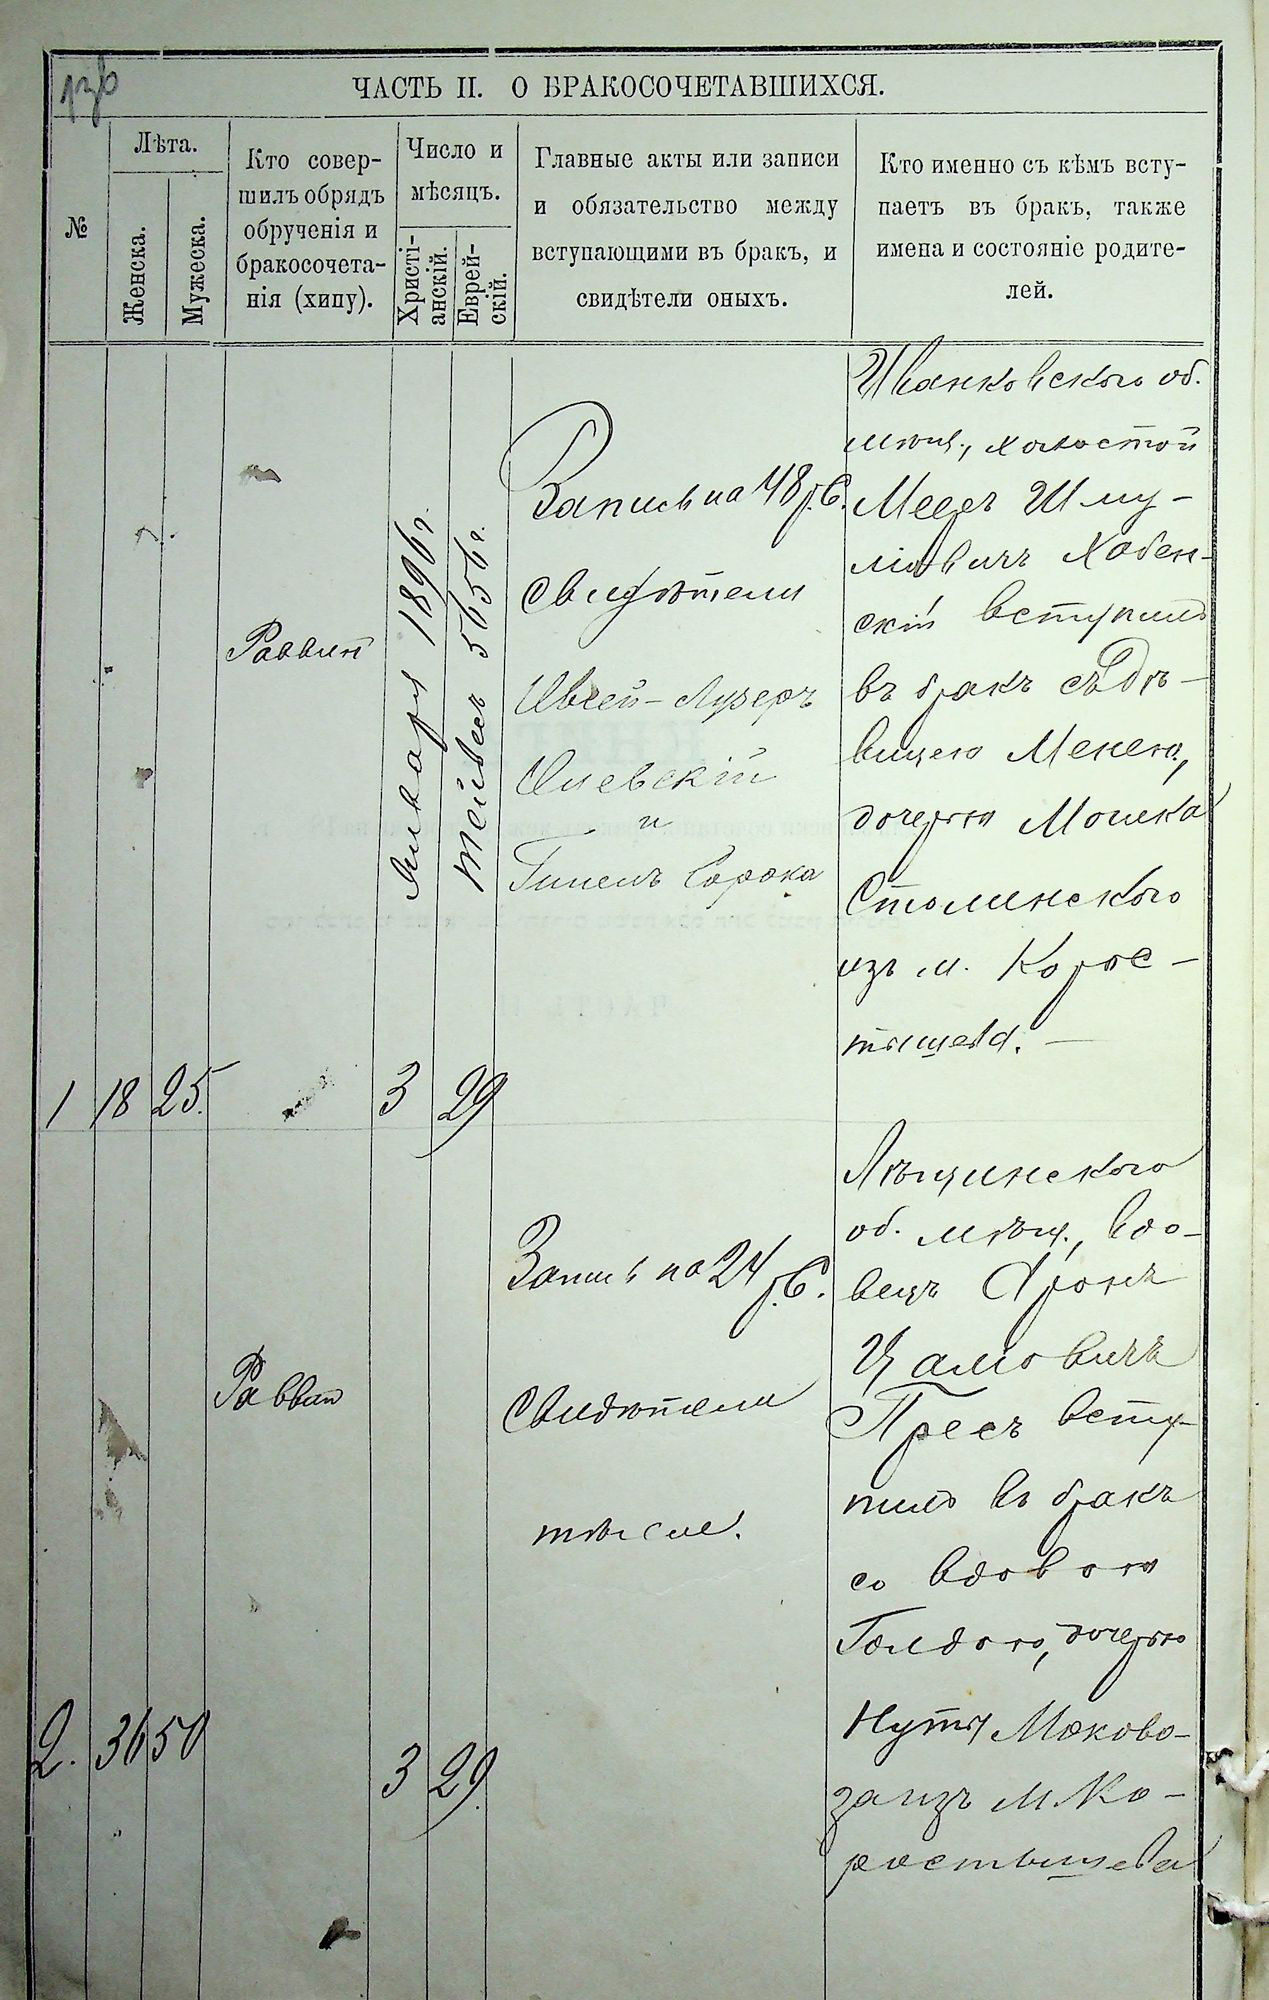 136
ЧАСТЬ II. О БРАКОСОЧЕТАВШИХСЯ.
№
Лѣта.
Женска.
Мужеска.
Кто совер-
шилъ обрядъ
обрученія и
бракосочета-
нія (хипу).
Число и
мѣсяцъ.
Христі-
анскій.
Еврей-
скій.
Главные акты или записи
и обязательство между
вступающими въ бракъ, и
свидѣтели оныхъ.
Кто именно съ кѣмъ всту-
паетъ въ бракъ, также
имена и состояніе родите-
лей.
1
18
25.
Раввин
Январь 1896 г.
3
Тейвесъ 5656 г.
29
Запись на 48 р. С.
свидѣтели
Овсей-Лузеръ
Олевскій
и
Гилель Сорока
Иванковского об.
мѣщ., холостой
Меер Шму-
лiовичъ Хабен-
скій вступилъ
въ бракъ съ Дѣ-
вицею Менею,
дочерью Мошка
Столинского
изъ м. Корос-
тышева.
2.
36
50
Раввин
3
29.
Запись на 24 р. С.
Свидѣтели
тѣ же.
об. мѣщ., вдо-
вецъ Аронъ
Цалiовичъ
Пресъ всту-
пилъ въ бракъ
со вдовою
Голдою, дочерью
Нуты Маково-
за изъ м. Ко-
ростышева